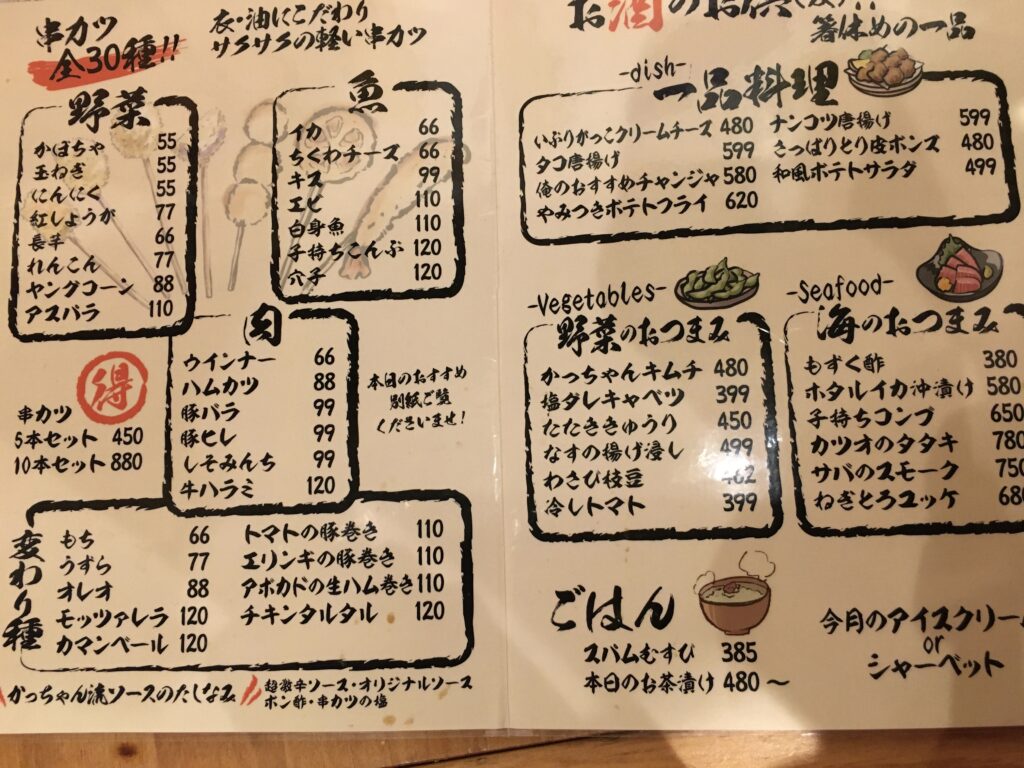 串カツ
全30種!!
衣・油にこだわり
サクサクの軽い串カツ
野菜
かぼちゃ 55
玉ねぎ 55
にんにく 55
紅しょうが 77
長芋 66
れんこん 77
ヤングコーン 88
アスパラ 110
魚
イカ 66
ちくわチーズ 66
キス 99
エビ 110
白身魚 110
子持ちこんぶ 120
穴子 120
肉
ウインナー 66
ハムカツ 88
豚バラ 99
豚ヒレ 99
しそみんち 99
牛ハラミ 120
得
串カツ
5本セット 450
10本セット 880
本日のおすすめ
別紙ご覧
くださいませ!
変わり種
もち 66
うずら 77
オレオ 88
モッツァレラ 120
カマンベール 120
トマトの豚巻き 110
エリンギの豚巻き 110
アボカドの生ハム巻き 110
チキンタルタル 120
かっちゃん流ソースのたしなみ
超激辛ソース・オリジナルソース
ポン酢・串カツの塩
お酒のお供に!!
箸休めの一品
-dish-
一品料理
いぶりがっこクリームチーズ 480
タコ唐揚げ 599
俺のおすすめチャンジャ 580
やみつきポテトフライ 620
ナンコツ唐揚げ 599
さっぱりとり皮ポンズ 480
和風ポテトサラダ 499
-Vegetables-
野菜のおつまみ
かっちゃんキムチ 480
塩ダレキャベツ 399
たたききゅうり 450
なすの揚げ浸し 499
わさび枝豆 462
冷しトマト 399
-Seafood-
海のおつまみ
もずく酢 380
ホタルイカ沖漬け 580
子持ちコンブ 650
カツオのタタキ 780
サバのスモーク 750
ねぎとろユッケ 680
ごはん
スパムむすび 385
本日のお茶漬け 480〜
今月のアイスクリーム
or
シャーベット